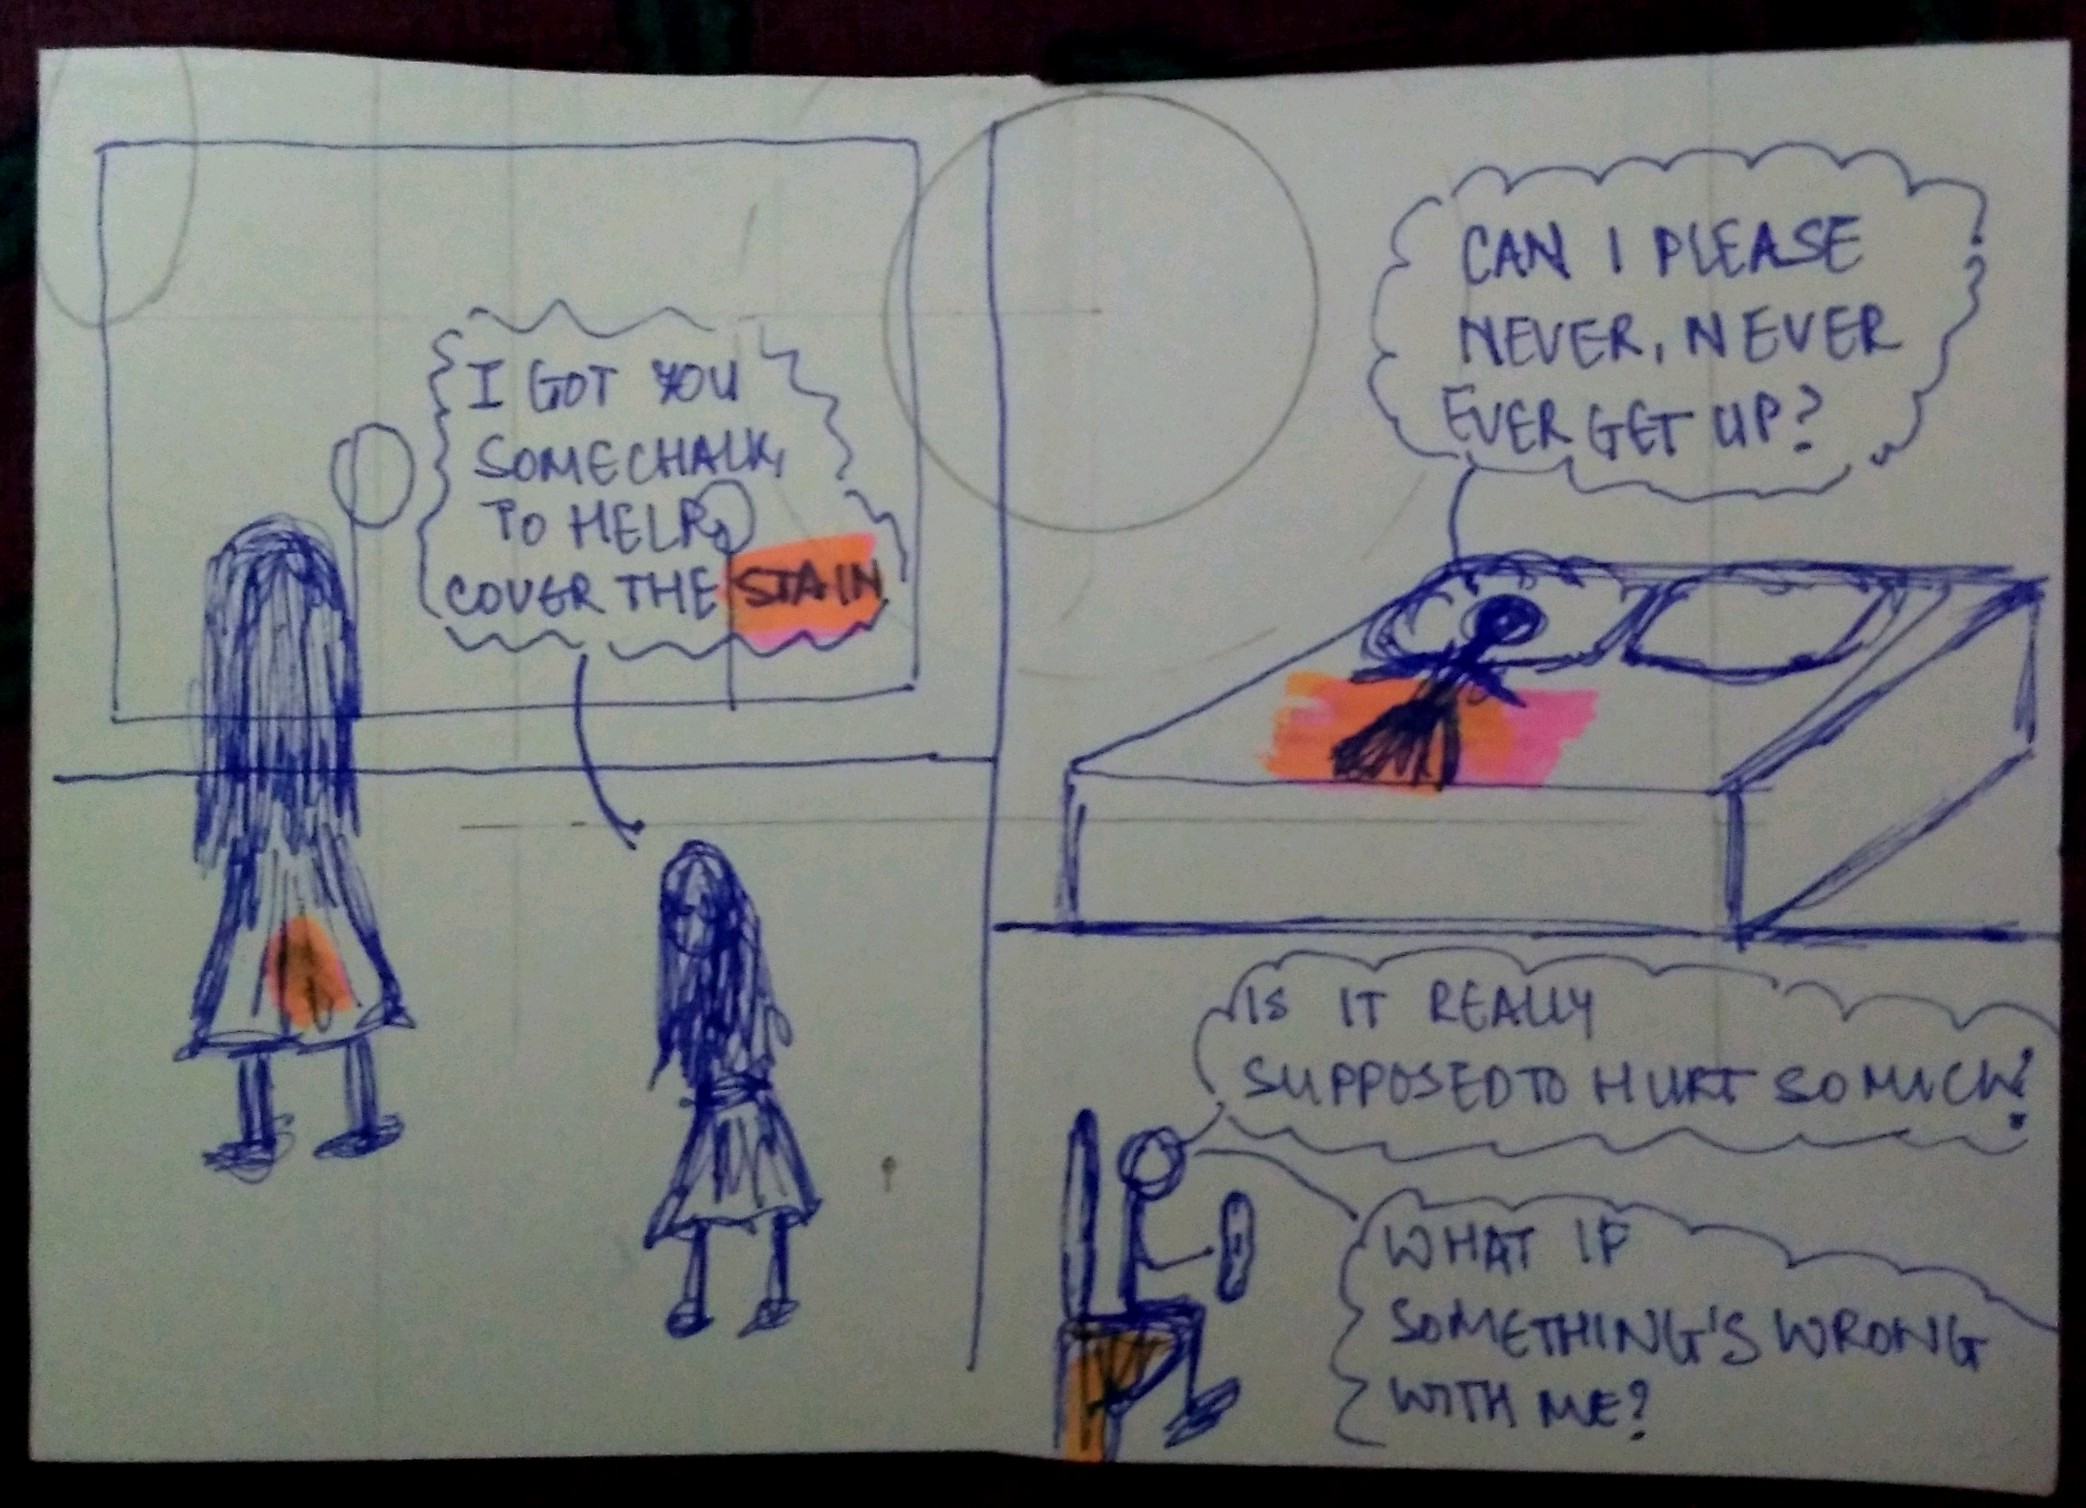 I GOT YOU
SOME CHALK,
TO HELP,
COVER THE STAIN
CAN I PLEASE
NEVER, NEVER
EVER GET UP?
IS IT REALLY
SUPPOSED TO HURT SO MUCH?
WHAT IF
SOMETHING'S WRONG
WITH ME?